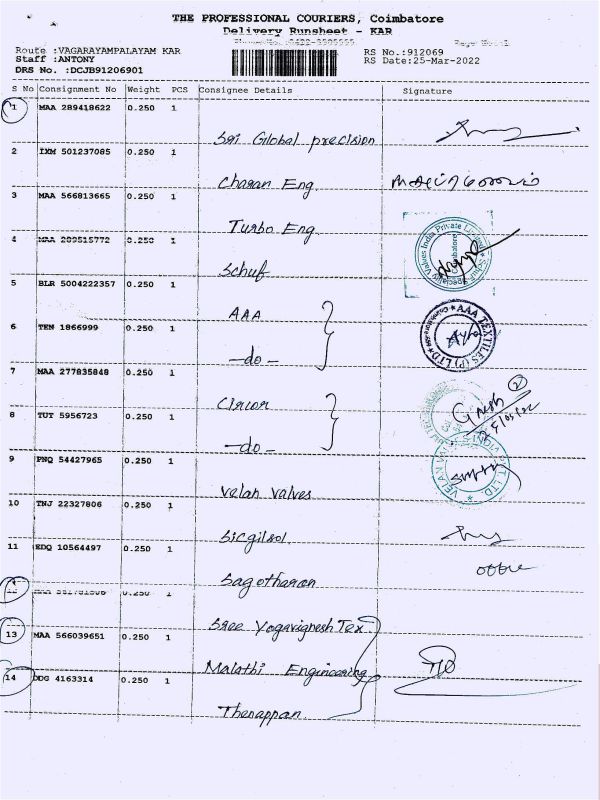 THE PROFESSIONAL COURIERS, Coimbatore
Delivery Runsheet - KAR
Route :VAGARAYAMPALAYAM KAR
RS No.:912069
Staff :ANTONY
RS Date:25-Mar-2022
DRS No. :DCJB91206901
S No Consignment No Weight PCS Consignee Details Signature
1 MAA 289418622 0.250 1
Sri Global precision
2 IXM 501237085 0.250 1
Charan Eng
3 MAA 566813665 0.250 1
Turbo Eng
4 MAA 289515772 0.250 1
Schuf
5 BLR 5004222357 0.250 1
AAA
6 TEN 1866999 0.250 1
-do-
7 MAA 277835848 0.250 1
8 TUT 5956723 0.250 1
-do-
9 PNQ 54427965 0.250 1
Velan Valves
10 TNJ 22327806 0.250 1
Sicgilsol
11 EDQ 10564497 0.250 1
12 0.250 1
Sree Yogavignesh Tex
13 MAA 566039651 0.250 1
Malathi Engineering
14 DDG 4163314 0.250 1
Thenappan
AAA TEXTILES (P) LTD
VELAN VALVES INDIA PVT LTD